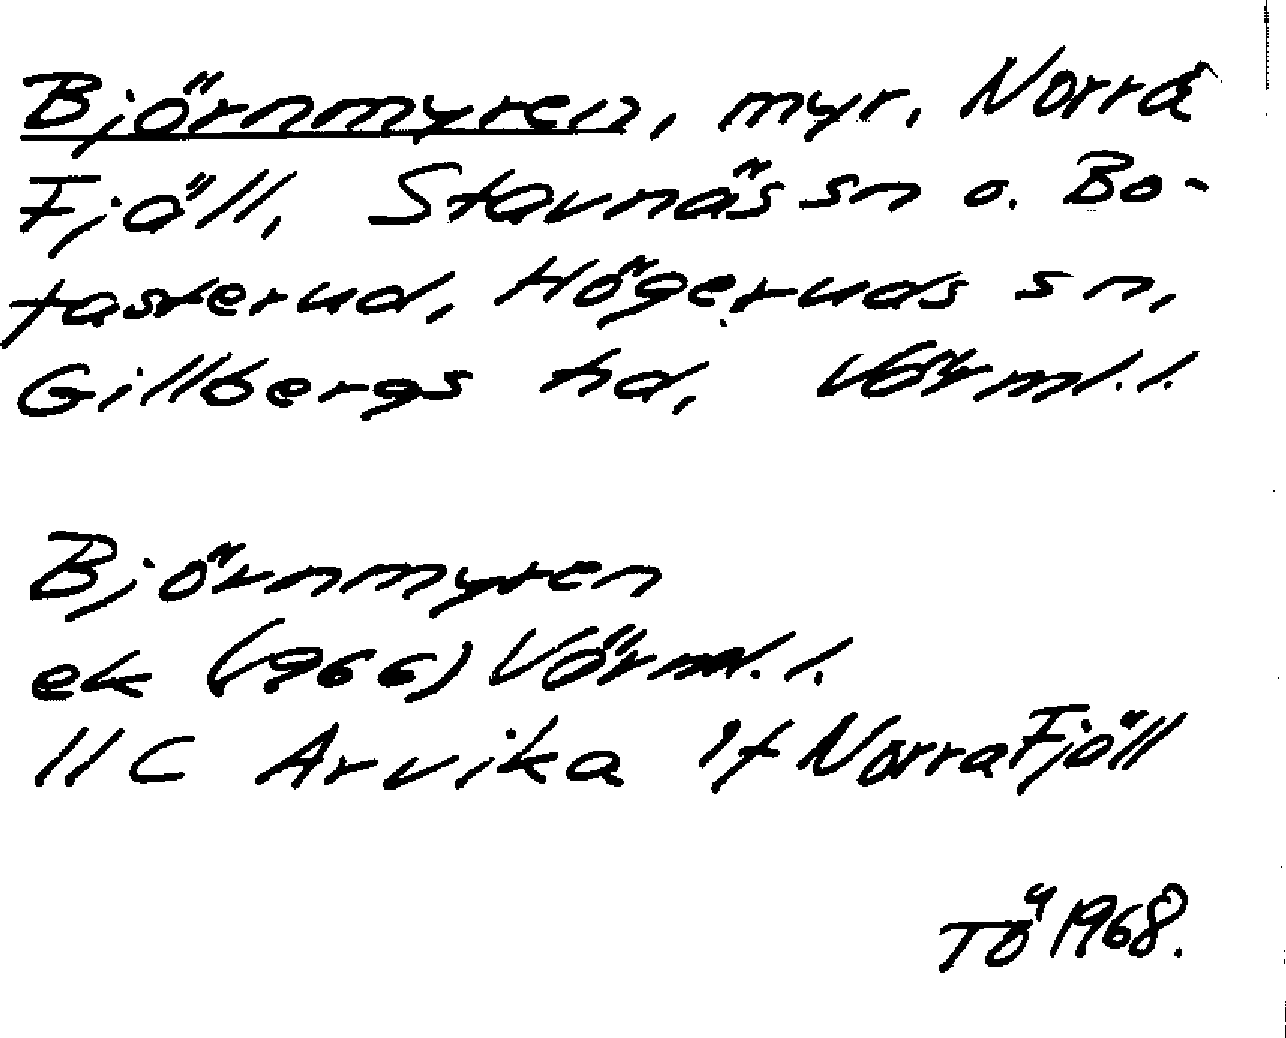 Björnmyren, myr. Norra
Fjäll, Stavnäs sn o. Bo-
tasterud, Högeruds sn,
Gillbergs hd, Värml.l.
Björnmyren
ek (1966) Värml.l.
11C Arvika 1f Norra Fjäll
TÖ 1968.